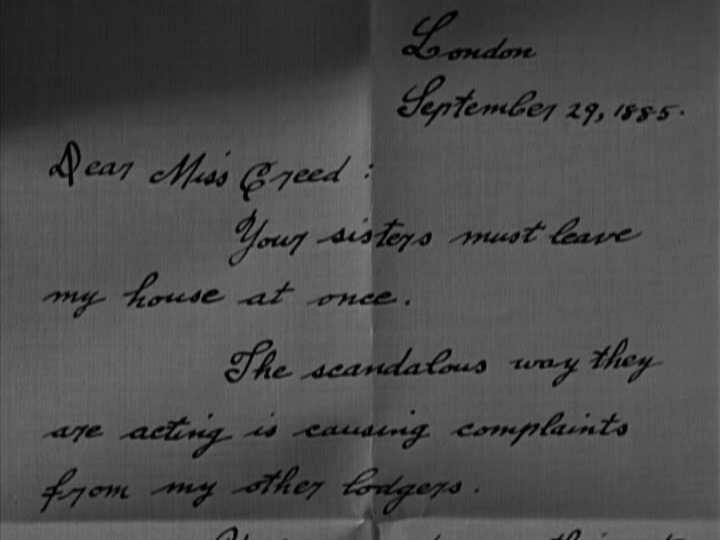 London
September 29, 1885.
Dear Miss Creed :
Your sisters must leave
my house at once.
The scandalous way they
are acting is causing complaints
from my other lodgers.